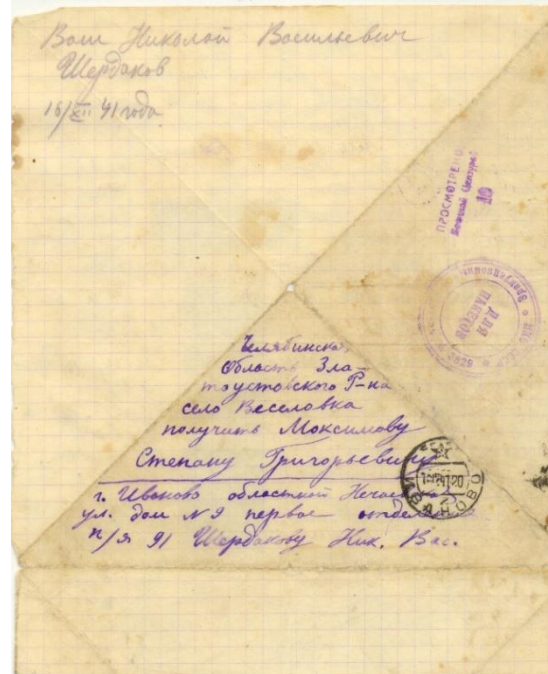 Ваш Николай Васильевич
Щердаков
16/XII 41 года
ПРОСМОТРЕНО
Военной Цензурой
10
ДЛЯ
ПАКЕТОВ
Челябинская
Область Зла-
тоустовского Р-на
село Веселовка
получить Моксимову
Степану Григорьевичу
г. Иваново областной
ул. дом №9 первое
п/я 91 Щердакову Ник. Вас.